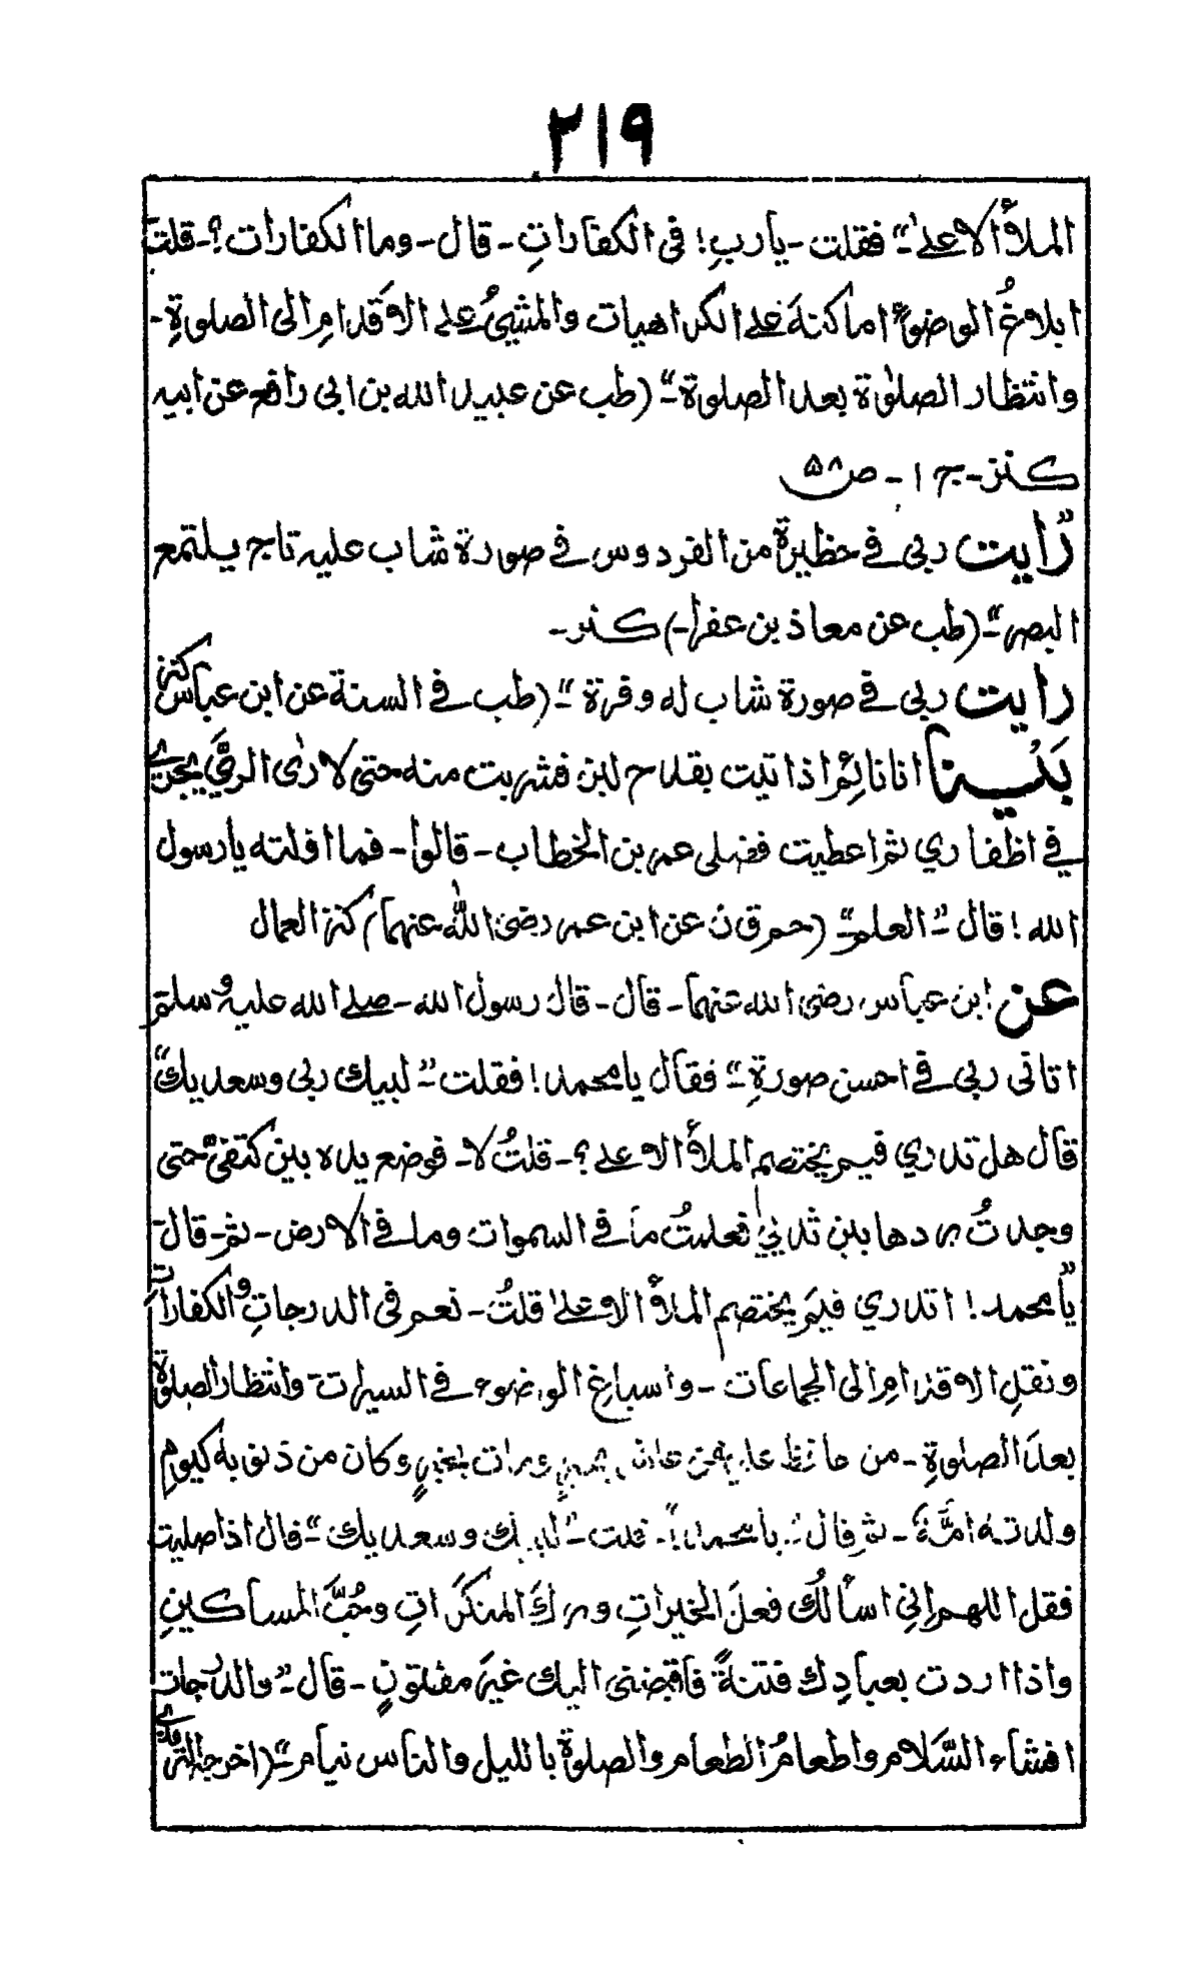 ٢١٩
الملأ الاعلىٰ“ فقلت - يا ربِ! فى الكفاراتِ - قال - وما الكفارات؟ - قلت
ابلاغُ الوضوءِ اماكنهَ على الكراهيات والمشيُ على الاقدامِ الى الصلوةِ -
وانتظار الصلوٰة بعد الصلوة“ (طب عن عبيد الله بن ابى رافع عن ابيه
كنز - ج ١ - ص ٥٨
”رايت ربى فى حظيرة من الفردوس فى صورة شاب عليه تاج يلتمع
البصر“ (طب عن معاذ بن عفرا -) كنز -
رايت ربى فى صورة شاب له وفرة“ (طب فى السنة عن ابن عباس كنز
بَيْنا انا نائم اذ اتيت بقدح لبن فشربت منه حتى لارٰى الرىَّ يجرى
فى اظفاري ثم اعطيت فضلى عمر بن الخطاب - قالوا - فما اولته يا رسول
الله! قال ”العلم“ (حم ق ن عن ابن عمر رضى الله عنهما) كنز العمال
عن ابن عباس رضى الله عنهما - قال - قال رسول الله - صلى الله عليه وسلم
اتانى ربى فى احسن صورةِ“ فقال يا محمد! فقلت ”لبيك ربى وسعديك“
قال هل تدري فيم يختصم الملأ الاعلى؟ - قلتُ لا - فوضع يده بين كتفىَّ حتى
وجدتُ بردها بين ثدييّ فعلمتُ ما فى السموات وما فى الارض - ثم - قال
”يا محمد! اتدري فيم يختصم الملأ الاعلىٰ قلتُ - نعم فى الدرجاتِ والكفارات
ونقلِ الاقدامِ الى الجماعات - واسباغِ الوضوء فى السبرات وانتظار الصلوة
بعدَ الصلوٰةِ - من حافظ عليهن عاش بخيرٍ ومات بخيرٍ وكان من ذنوبه كيومِ
ولدتهُ امُّهُ - ثم قال ”يا محمد!“ - قلت ”لبيك وسعديك“ قال اذا صليت
فقل اللهم انِى اسألُك فعلَ الخيراتِ وتركَ المنكراتِ وحُبَّ المساكينِ
واذا اردت بعبادِك فتنةً فاقبضنى اليك غيرَ مفتونٍ - قال ”والدرجات
افشاء السَّلام واطعامُ الطعام والصلوة بالليل والناس نيام“ (اخرجه الترمذى